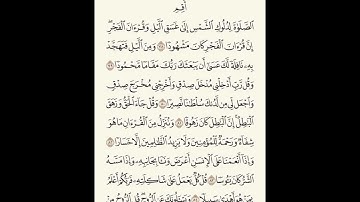 أَقِمِ
ٱلصَّلَوٰةَ لِدُلُوكِ ٱلشَّمْسِ إِلَىٰ غَسَقِ ٱلَّيْلِ وَقُرْءَانَ ٱلْفَجْرِ
إِنَّ قُرْءَانَ ٱلْفَجْرِ كَانَ مَشْهُودًا ٧٨ وَمِنَ ٱلَّيْلِ فَتَهَجَّدْ
بِهِۦ نَافِلَةً لَّكَ عَسَىٰٓ أَن يَبْعَثَكَ رَبُّكَ مَقَامًا مَّحْمُودًا ٧٩
وَقُل رَّبِّ أَدْخِلْنِى مُدْخَلَ صِدْقٍ وَأَخْرِجْنِى مُخْرَجَ صِدْقٍ
وَٱجْعَل لِّى مِن لَّدُنكَ سُلْطَـٰنًا نَّصِيرًا ٨٠ وَقُلْ جَآءَ ٱلْحَقُّ وَزَهَقَ
ٱلْبَـٰطِلُ إِنَّ ٱلْبَـٰطِلَ كَانَ زَهُوقًا ٨١ وَنُنَزِّلُ مِنَ ٱلْقُرْءَانِ مَا هُوَ
شِفَآءٌ وَرَحْمَةٌ لِّلْمُؤْمِنِينَ وَلَا يَزِيدُ ٱلظَّـٰلِمِينَ إِلَّا خَسَارًا ٨٢
وَإِذَآ أَنْعَمْنَا عَلَى ٱلْإِنسَـٰنِ أَعْرَضَ وَنَـَٔا بِجَانِبِهِۦ وَإِذَا مَسَّهُ
ٱلشَّرُّ كَانَ يَـُٔوسًا ٨٣ قُلْ كُلٌّ يَعْمَلُ عَلَىٰ شَاكِلَتِهِۦ فَرَبُّكُمْ أَعْلَمُ
بِمَنْ هُوَ أَهْدَىٰ سَبِيلًا ٨٤ وَيَسْـَٔلُونَكَ عَنِ ٱلرُّوحِ قُلِ ٱلرُّوحُ مِنْ